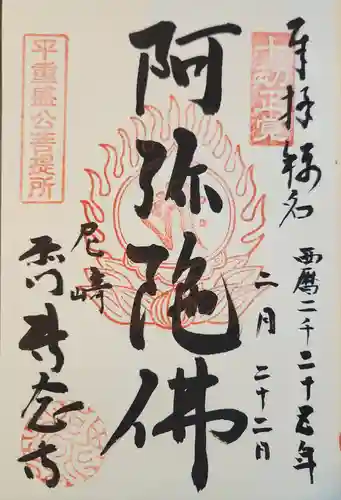 奉拝 称名
西暦二千二十五年
二月 二十二日
十劫正覚
阿弥陀佛
尼崎
専念寺
平重盛公菩提所